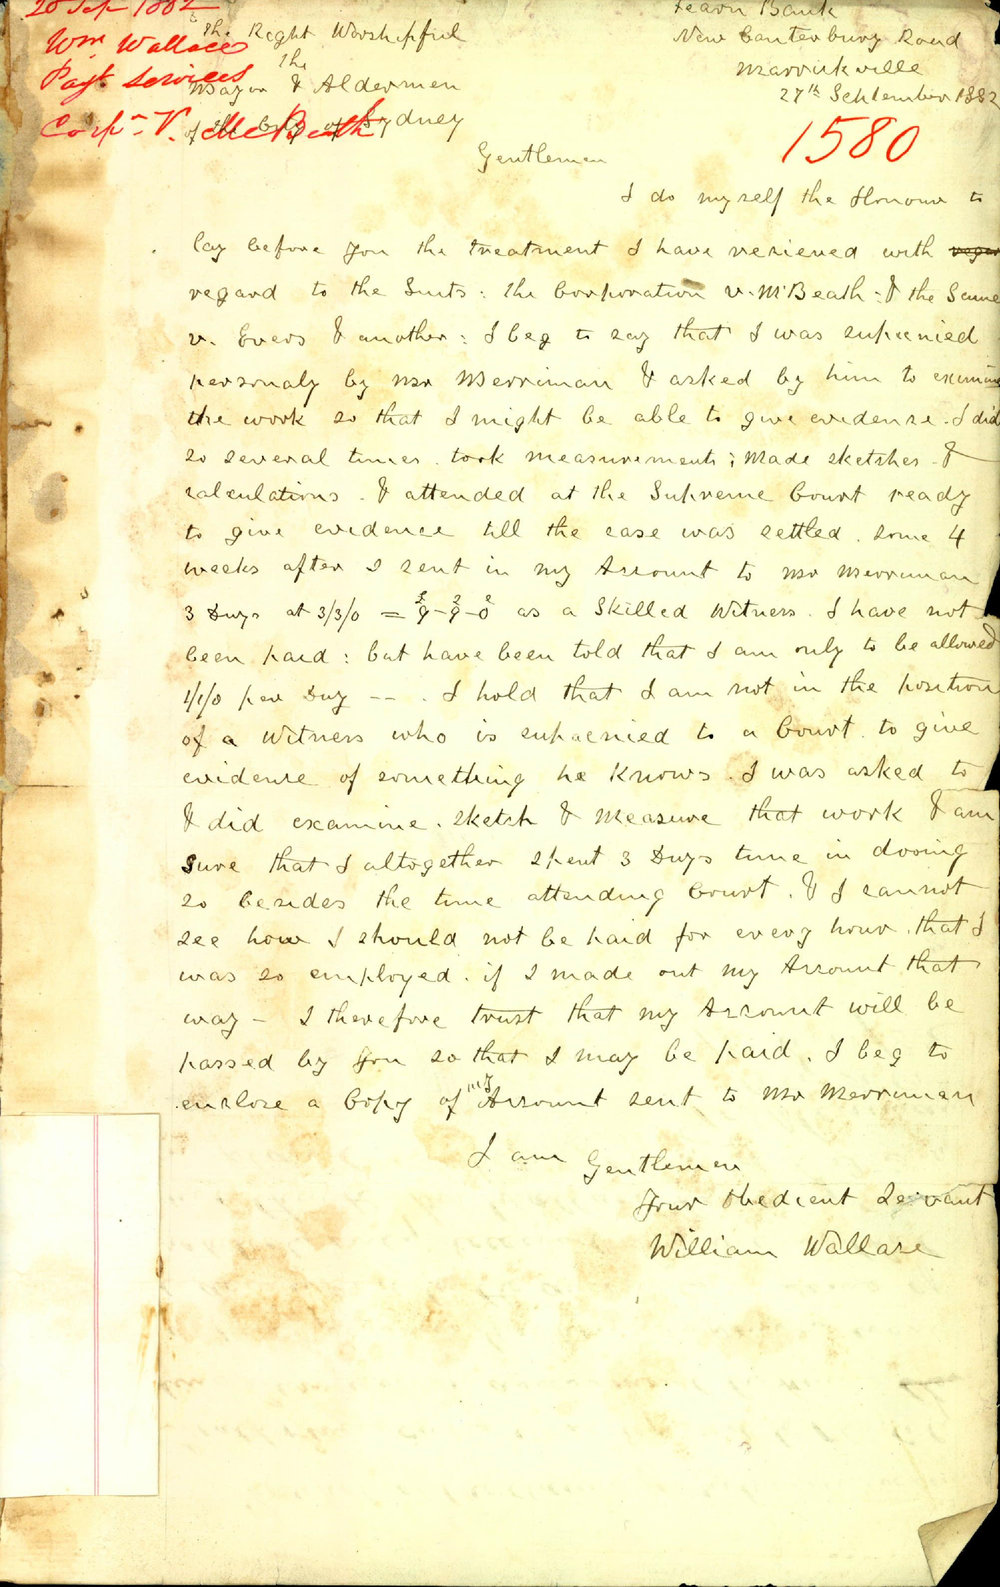 28 Sep 1882
Wm Wallace
Payt Services
Corpn V. McBeath
Bank
New Canterbury Road
Marrickville
27th September 1882
1580
The Right Worshipful
the
Mayor & Aldermen
of the City of Sydney
Gentlemen
I do myself the Honour to
lay before you the treatment I have recieved with
regard to the Suits: the Corporation v. McBeath: & the Same
v. Evers & another: I beg to say that I was supœnied
personaly by Mr Merriman & asked by him to examine
the work so that I might be able to give evidense. I did
so several times. took measurements; made sketches. &
calculations. & attended at the Supreme Court ready
to give evidence till the case was settled. some 4
weeks after I sent in my Account to Mr Merriman
3 Days at 3/3/0 = £9-9-0 as a Skilled Witness. I have not
been paid: but have been told that I am only to be allowed
1/1/0 per Day --. I hold that I am not in the position
of a Witness who is supœnied to a Court. to give
evidense of something he Knows. I was asked to
& did examine. sketch & measure that work & am
sure that I altogether spent 3 Days time in dooing
so besides the time attending Court. & I cannot
see how I should not be paid for every hour. that I
was so employed. if I made out my Account that
way - I therefore trust that my Account will be
passed by you so that I may be paid. I beg to
enclose a Copy of my Account sent to Mr Merriman
I am Gentlemen
Your Obedient Servant
William Wallace